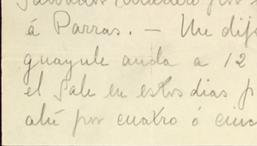 á Parras. — Me dijo
guayule anda a 12
el sale en estos dias p
ahí por cuatro ó cinc